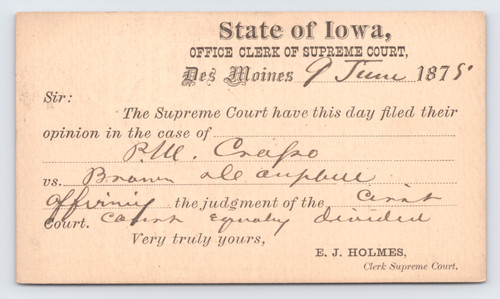 State of Iowa,
OFFICE CLERK OF SUPREME COURT,
Des Moines 9 June 1875.
Sir:
The Supreme Court have this day filed their
opinion in the case of
P.M. Crapo
vs. Brown
affirming the judgment of the
Court. Court Equally divided
Very truly yours,
E. J. HOLMES,
Clerk Supreme Court.